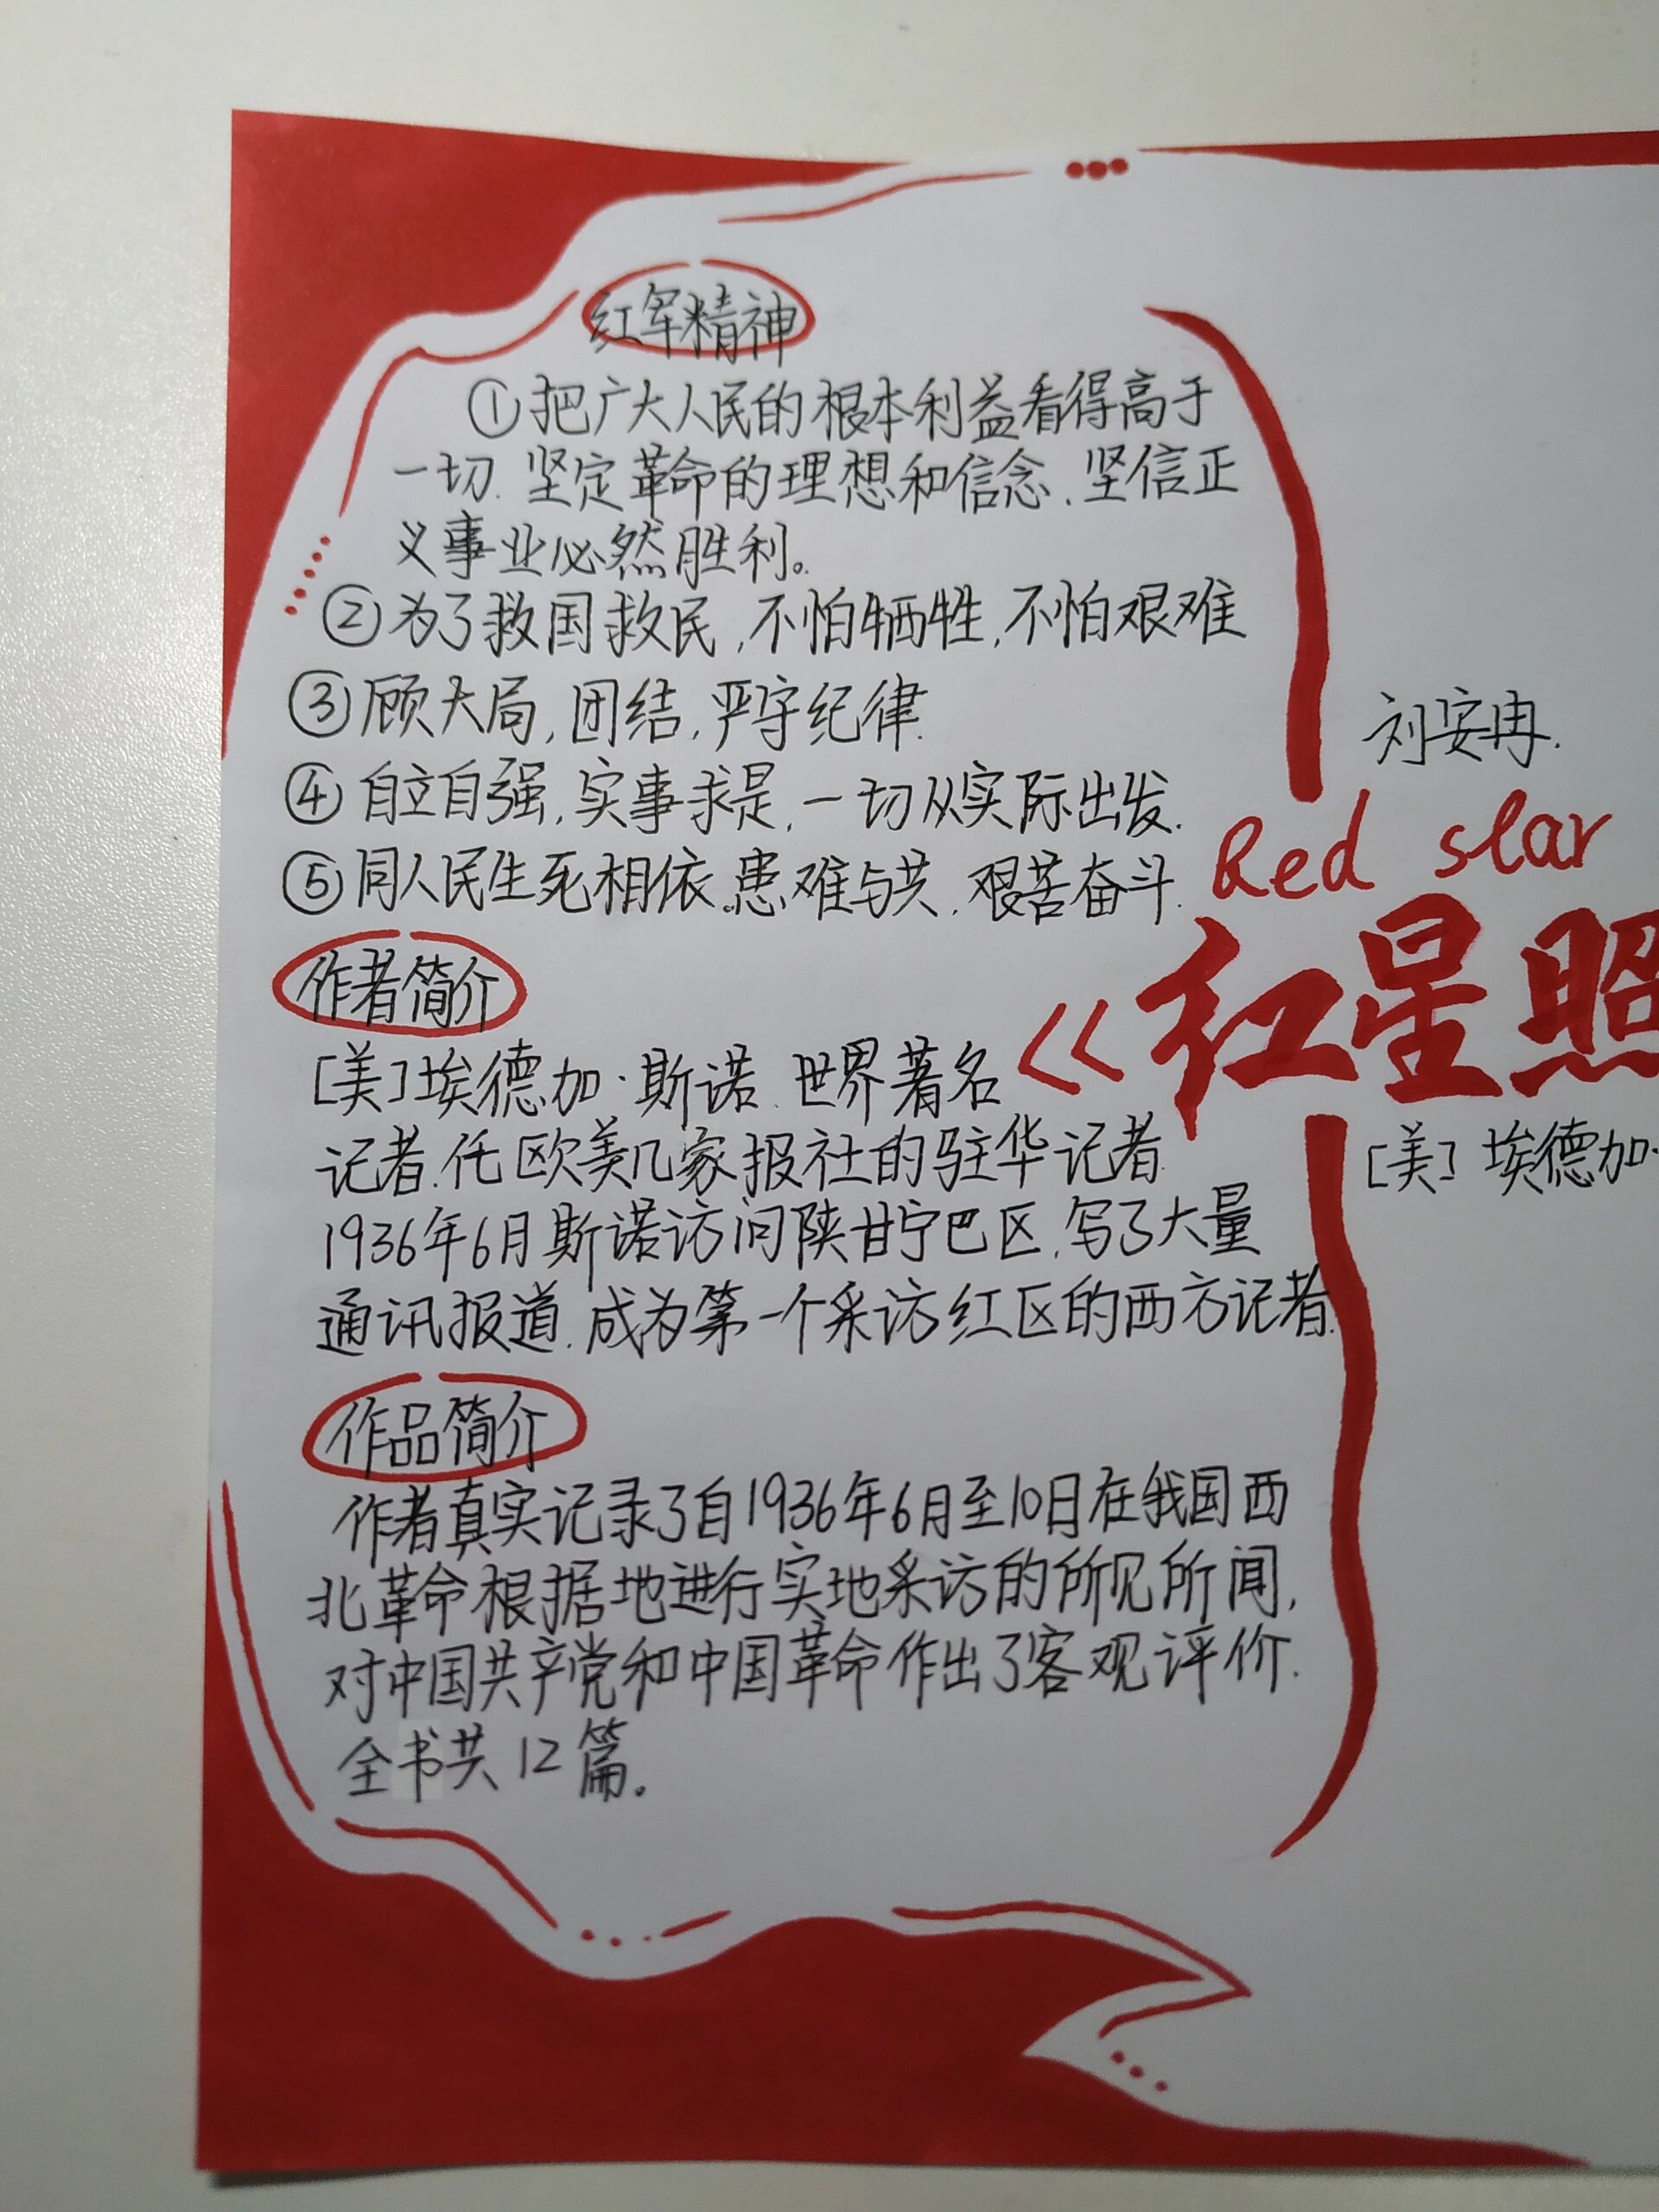 红军精神
①把广大人民的根本利益看得高于
一切.坚定革命的理想和信念.坚信正
义事业必然胜利。
②为了救国救民,不怕牺牲,不怕艰难
③顾大局,团结,严守纪律.
④自立自强,实事求是,一切从实际出发.
⑤同人民生死相依.患难与共.艰苦奋斗.
作者简介
[美]埃德加·斯诺.世界著名
记者.任欧美几家报社的驻华记者.
1936年6月斯诺访问陕甘宁巴区,写了大量
通讯报道.成为第一个采访红区的西方记者.
作品简介
作者真实记录了自1936年6月至10日在我国西
北革命根据地进行实地采访的所见所闻,
对中国共产党和中国革命作出了客观评价.
全书共12篇。
刘安冉.
Red star
《红星照
[美]埃德加·